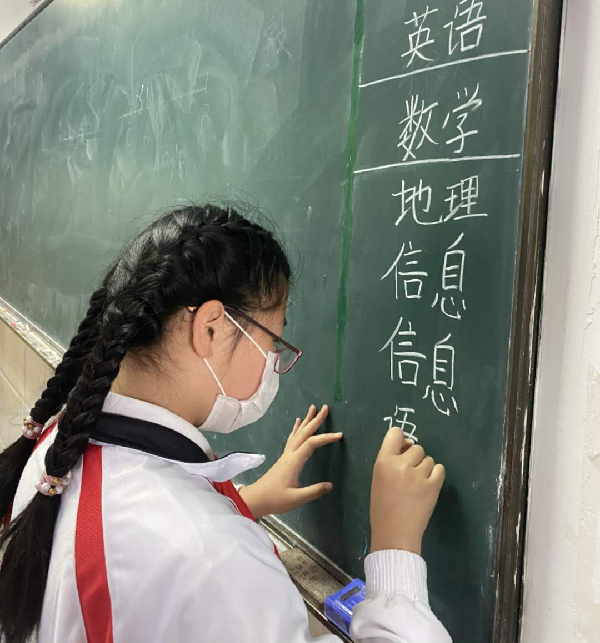 英语
数学
地理
信息
信息
语